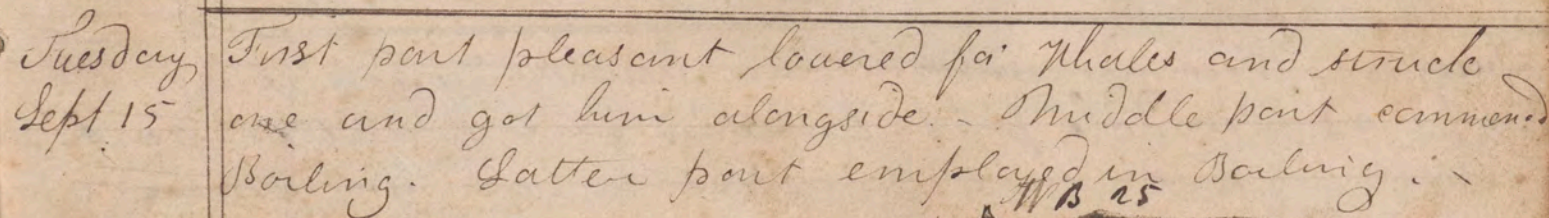 Tuesday First part pleasant lowered for Whales and struck
Sept 15 one and got him alongside. - Middle part commenced
Boiling. Latter part employed in Boiling. -
WB 25